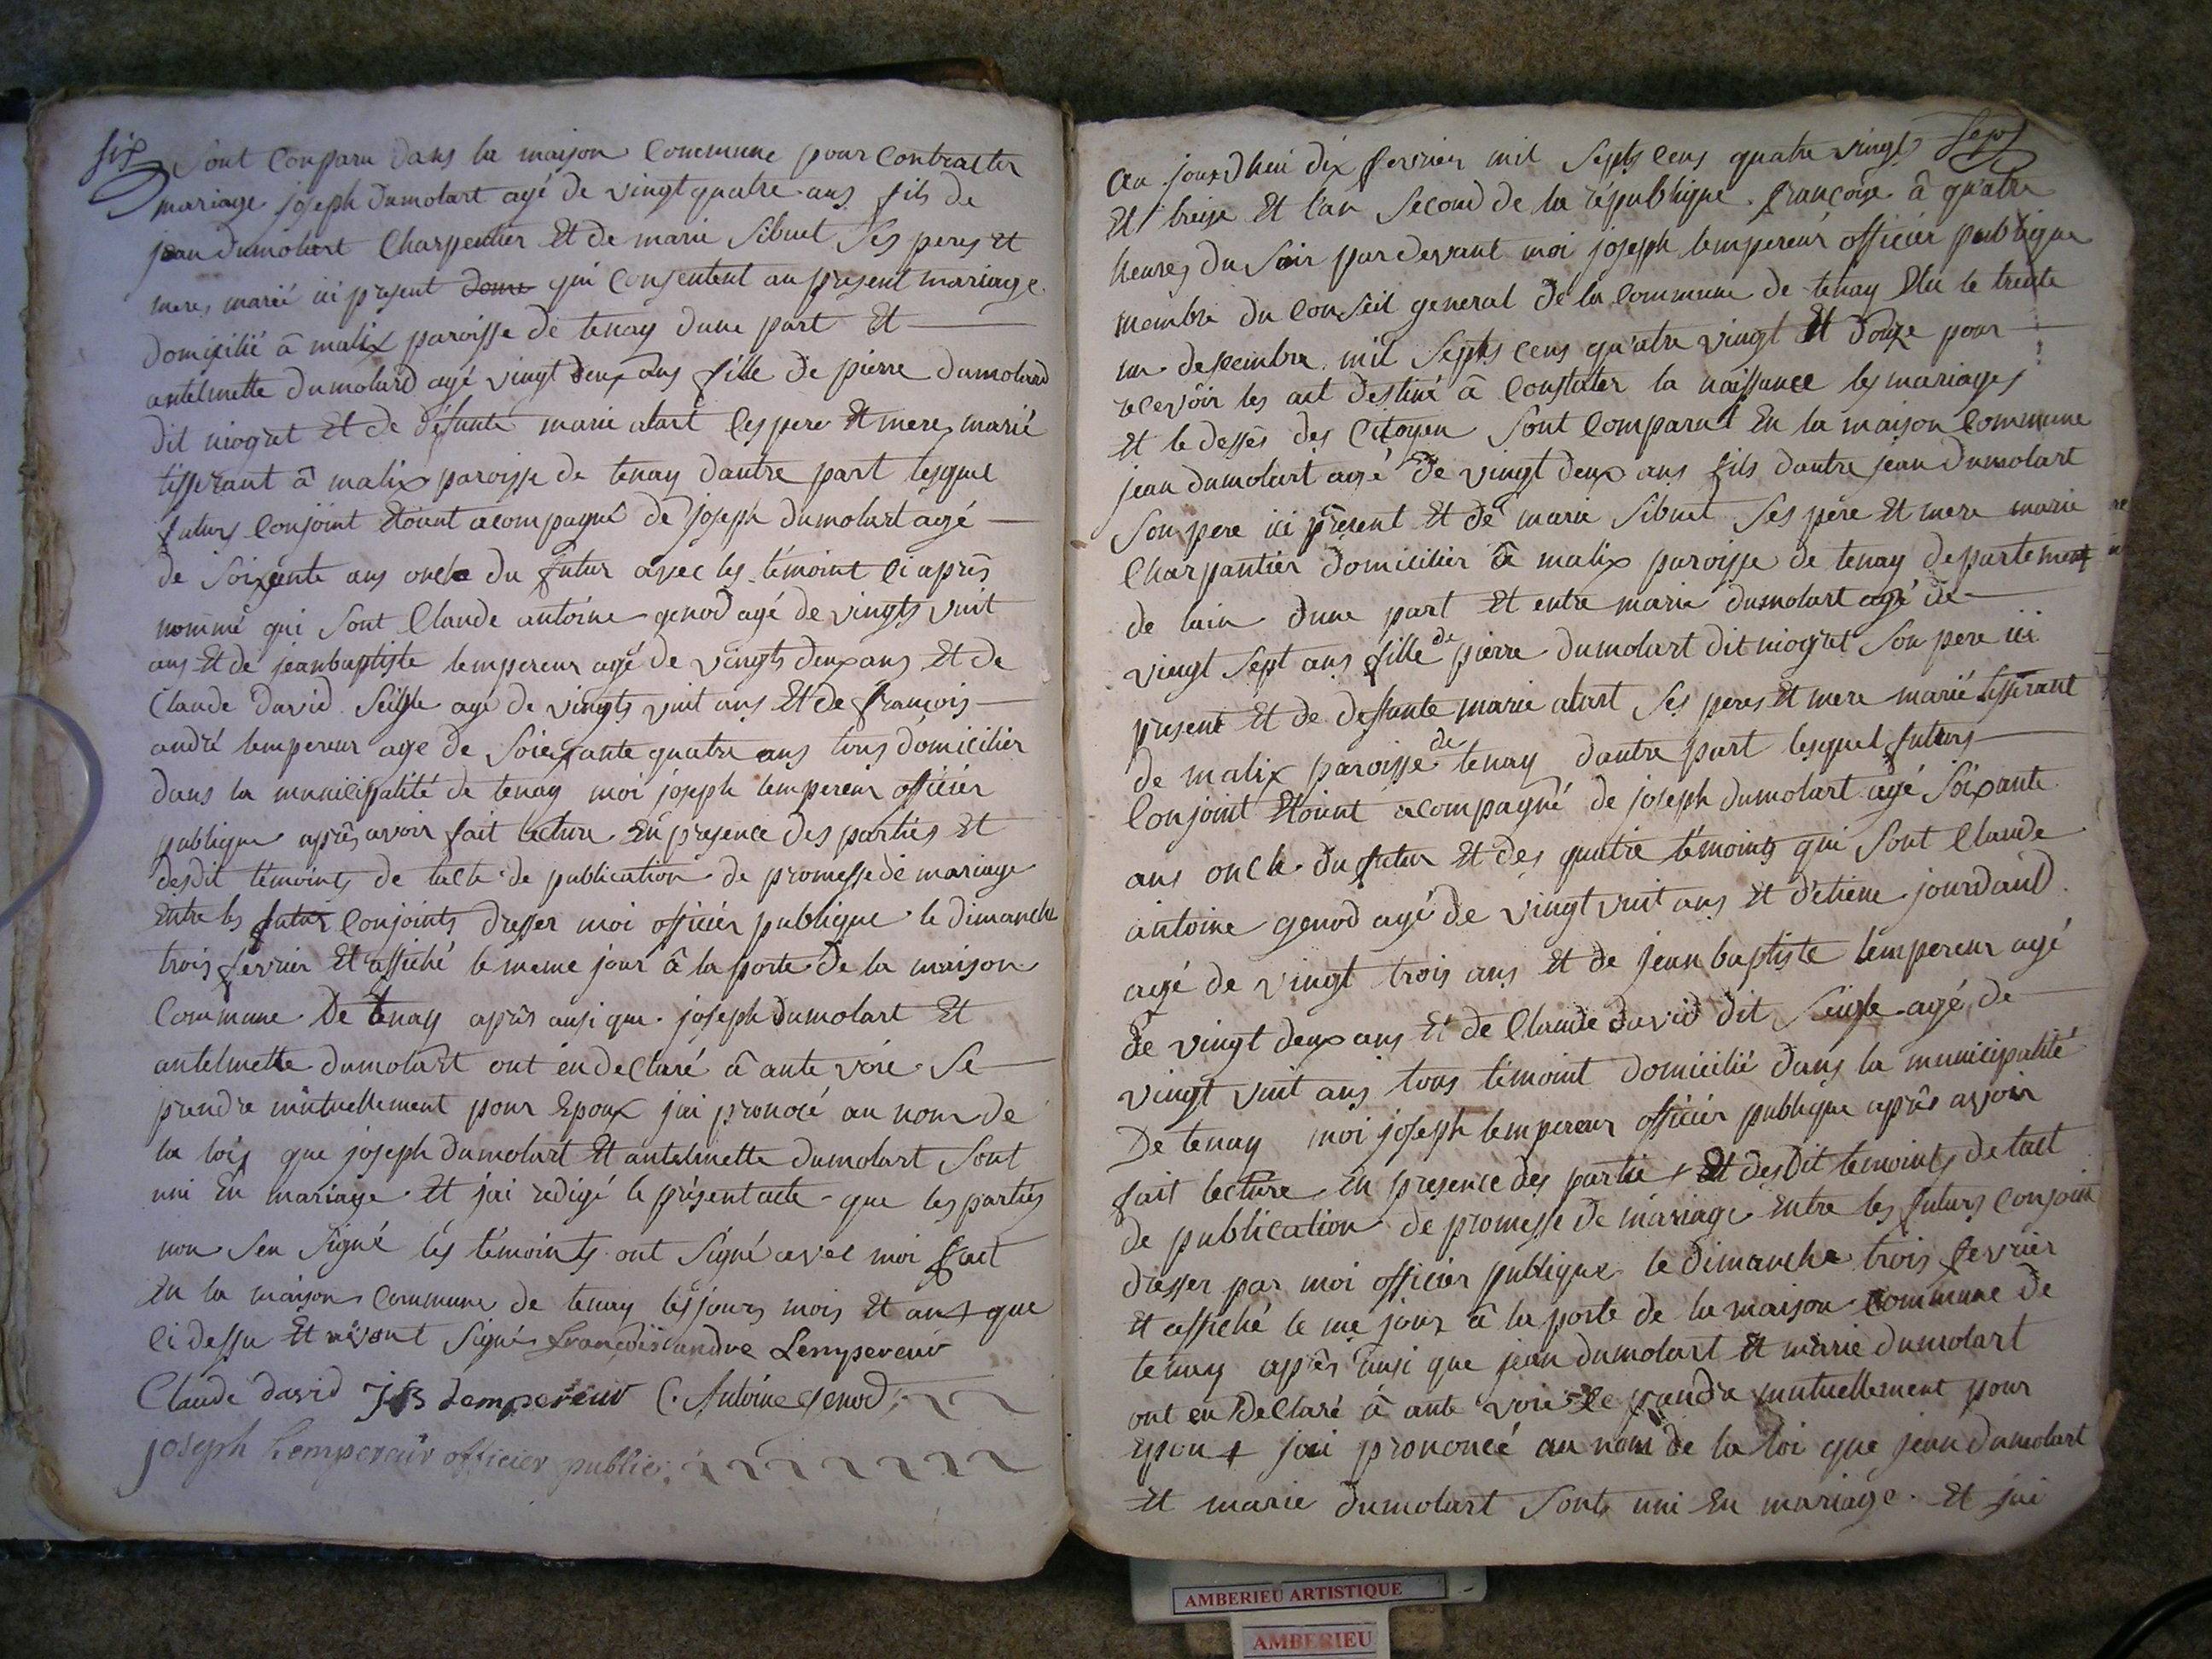 six
sont Conparu dans la maison Commune pour Contracter
mariage joseph dumolart agé de vingt quatre ans fils de
jean dumolart Charpentier Et de marie Sibuet Ses peres et
meres marié ici present qui Consentent au present mariage
domicilié â malix paroisse de tenay dune part Et
antelmette dumolard agé vingt deux ans fille de pierre dumolard
dit niogret Et de défunte marie alart Ces pere Et mere marié
tisserant â malix paroisse de tenay dautre part lesquel
futurs Conjoint Etoient acompagné de joseph dumolart agé
de soixente ans oncle du futur avec les témoint Ci aprês
nommé qui Sont Claude antoine genod agé de vingts vuit
ans Et de jeanbaptiste lempereur agé de vingts deux ans Et de
Claude David Seigle age de vingts vuit ans Et de françois
andré lempereur age de Soiexante quatre ans tous domicilier
dans la municipalité de tenay moi joseph lempereur officier
publique aprês avoir fait lecture En presence des parties Et
desdit témoints de lacte de publication de promesse de mariage
Entre les futur Conjoints dresser moi officier publique le dimanche
trois fevrier Et affiché le meme jour â la porte de la maison
Commune De tenay aprês ausi que joseph dumolart Et
antelmette dumolart ont en declaré â aute voie Se
prandre mutuellement pour Epoux jai pronocé au nom de
la lois que joseph dumolart Et antelmette dumolart Sont
uni En mariage Et jai redigé le présent acte que les parties
non Sen Signé les témoints ont Signé avec moi fait
En la maison Commune de tenay les jours mois Et ans que
Ci dessu Et Signé françois andre Lempereur
Claude david J B Lempereur C. Antoine genod
joseph Lempereur officier public
Sept
Au jourdhui dix fevrier mil Septs Cens quatre vingt
Et treize Et l'an Second de la république françoise â quatre
heures du Soir par devant moi joseph lempereur officier publique
membre du Conseil general de la Commune de tenay Elu le trente
un descembre mil Septs Cens quatre vingt Et douze pour
recevoir les act destiné â Constater la naissance les mariages
Et le dessès des Citoyen Sont Comparut En la maison Commune
jean dumolart agé de vingt deux ans fils dautre jean dumolart
Son pere ici présent Et de marie Sibuet Ses père Et mere marie
Charpantier domicilier â malix paroisse de tenay departement
de lain dune part Et entre marie dumolart agé de
vingt Sept ans fille de pierre dumolart dit niogret Son pere ici
present Et de deffunte marie alart Ses peres Et mere marié tisserant
de malix paroisse de tenay dautre part lesquel futurs
Conjoint Etoient acompagné de joseph dumolart agé Soixante
ans oncle du futur Et des quatre témoints qui Sont Claude
antoine genod agé de vingt vuit ans Et d'etiene jourdand
agé de vingt trois ans Et de jean baptiste lempereur agé
de vingt deux ans Et de Claude david dit Seigle agé de
vingt vuit ans tous témoint domicilié dans la municipalité
De tenay moi joseph lempereur officier publique aprês avoir
fait lecture En presence des partie Et desdit temoints de lact
de publication de promesse de mariage Entre les futurs Conjoint
dresser par moi officier publique le dimanche trois fevrier
Et affiché le me jour â la porte de la maison Commune de
tenay aprês ausi que jean dumolart Et marie dumolart
ont en Declaré â aute voie Se prandre mutuellement pour
Epoux jai prononcé au nom de la loi que jean dumolart
Et marie dumolart Sont uni En mariage Et jai
AMBERIEU ARTISTIQUE
AMBERIEU